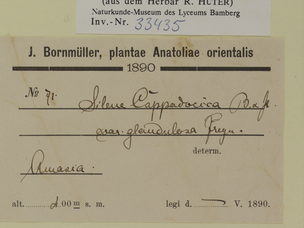 (aus dem Herbar R. HUTER)
Naturkunde-Museum des Lyceums Bamberg
Inv.-Nr. 33435
J. Bornmüller, plantae Anatoliae orientalis
1890
No 71. Silene Cappadocica B. & H.
var. glandulosa Freyn.
determ.
Amasia.
alt. 400 m s. m. legi d. V. 1890.